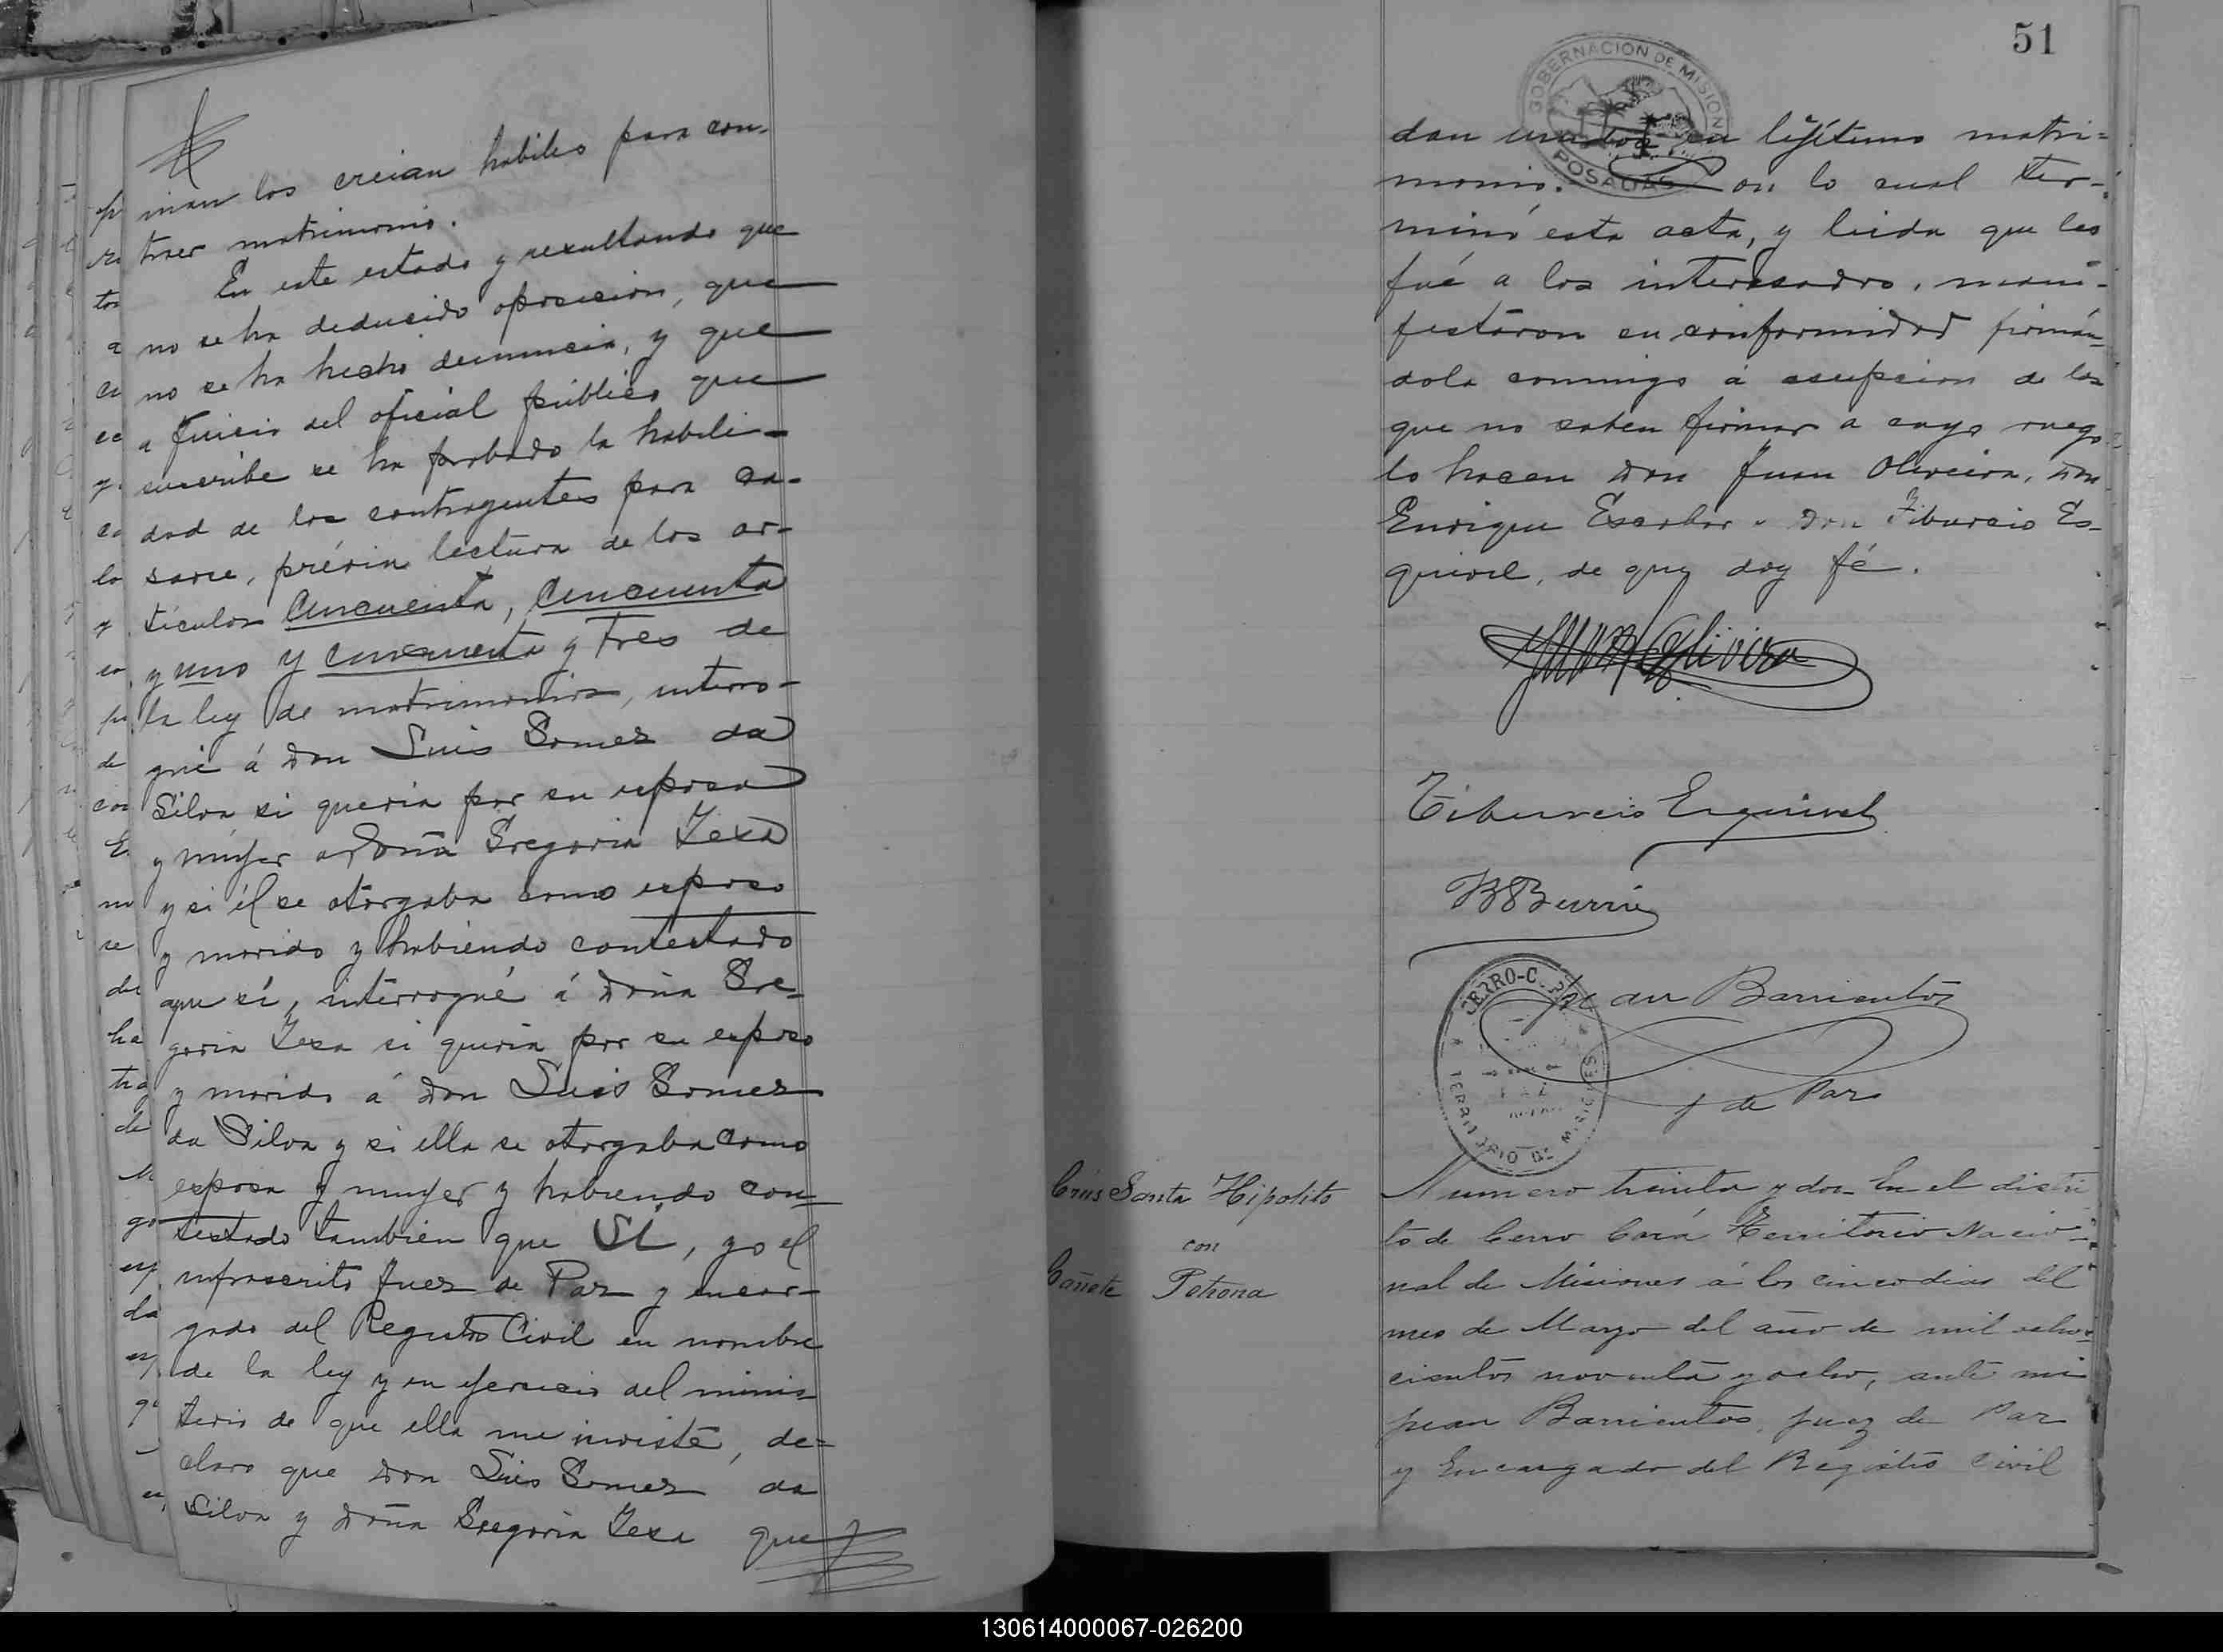 man los creian habiles para con-
traer matrimonio.
En este estado y resultando que
no se ha deducido oposicion, que
no se ha hecho denuncia, y que
a juicio del oficial público que
suscribe se ha probado la habili-
dad de los contrayentes para ca-
sarse, prévia lectura de los ar-
tículos Cincuenta, Cincuenta
y uno y cincuenta y tres de
la ley de matrimonios, interro-
gué á Don Luis Gomez da
Silva si queria por su esposa
y mujer a Doña Gregoria Texa
y si él se otorgaba como esposo
y marido y habiendo contestado
que sí, interrogué á Doña Gre-
goria Texa si queria por su esposo
y marido á Don Luis Gomez
da Silva y si ella se otorgaba como
esposa y mujer y habiendo con-
testado tambien que Sí, yo el
infrascrito Juez de Paz y encar-
gado del Registro Civil en nombre
de la ley y en ejercicio del minis-
terio de que ella me inviste, de-
claro que Don Luis Gomez da
Silva y Doña Gregoria Texa que
51
GOBERNACION DE MISIONES
POSADAS
dan unidos en lejítimo matri-
monio. Con lo cual ter-
minó esta acta, y leida que les
fué a los interesados, mani-
festáron su conformidad firmán-
dola conmigo á escepcion de los
que no saben firmar a cuyo ruego
lo hacen Don Juan Oliveira, Don
Enrique Escobar y Don Tiburcio Es-
quivel, de que doy fé.
Juan Oliveira
Tiburcio Esquivel
Juan Barrientos
J de Paz
CERRO-CORA
TERRITORIO DE MISIONES
Crús Santa Hipolito
con
Cañete Petrona
Numero treinta y dos En el distri
to de Cerro Corá Territorio Nacio-
nal de Misiones á los cinco dias del
mes de Marzo del año de mil ocho-
cientos noventa y ocho, ante mi
Juan Barrientos, Juez de Paz
y Encargado del Registro Civil
130614000067-026200